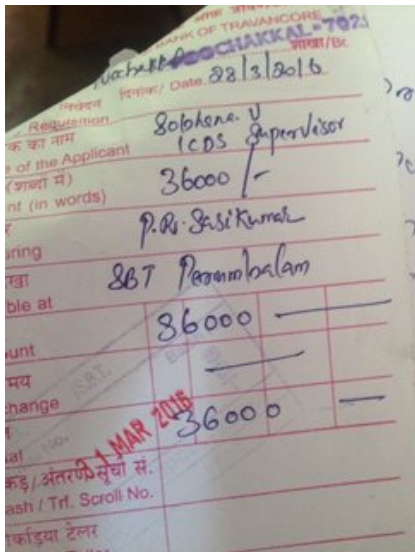 BANK OF TRAVANCORE
POOCHAKKAL-702
शाखा/Br.
दिनांक/ Date 28/3/2016
Requisition
क का नाम
of the Applicant
ICDS Supervisor
(शब्दों में)
nt (in words)
36000/-
P.R. Sasikumar
uring
SBT Perumbalam
ble at
36000
unt
hange
36000
MAR 2016
कड़/अंतरण सूची सं.
ash / Trf. Scroll No.